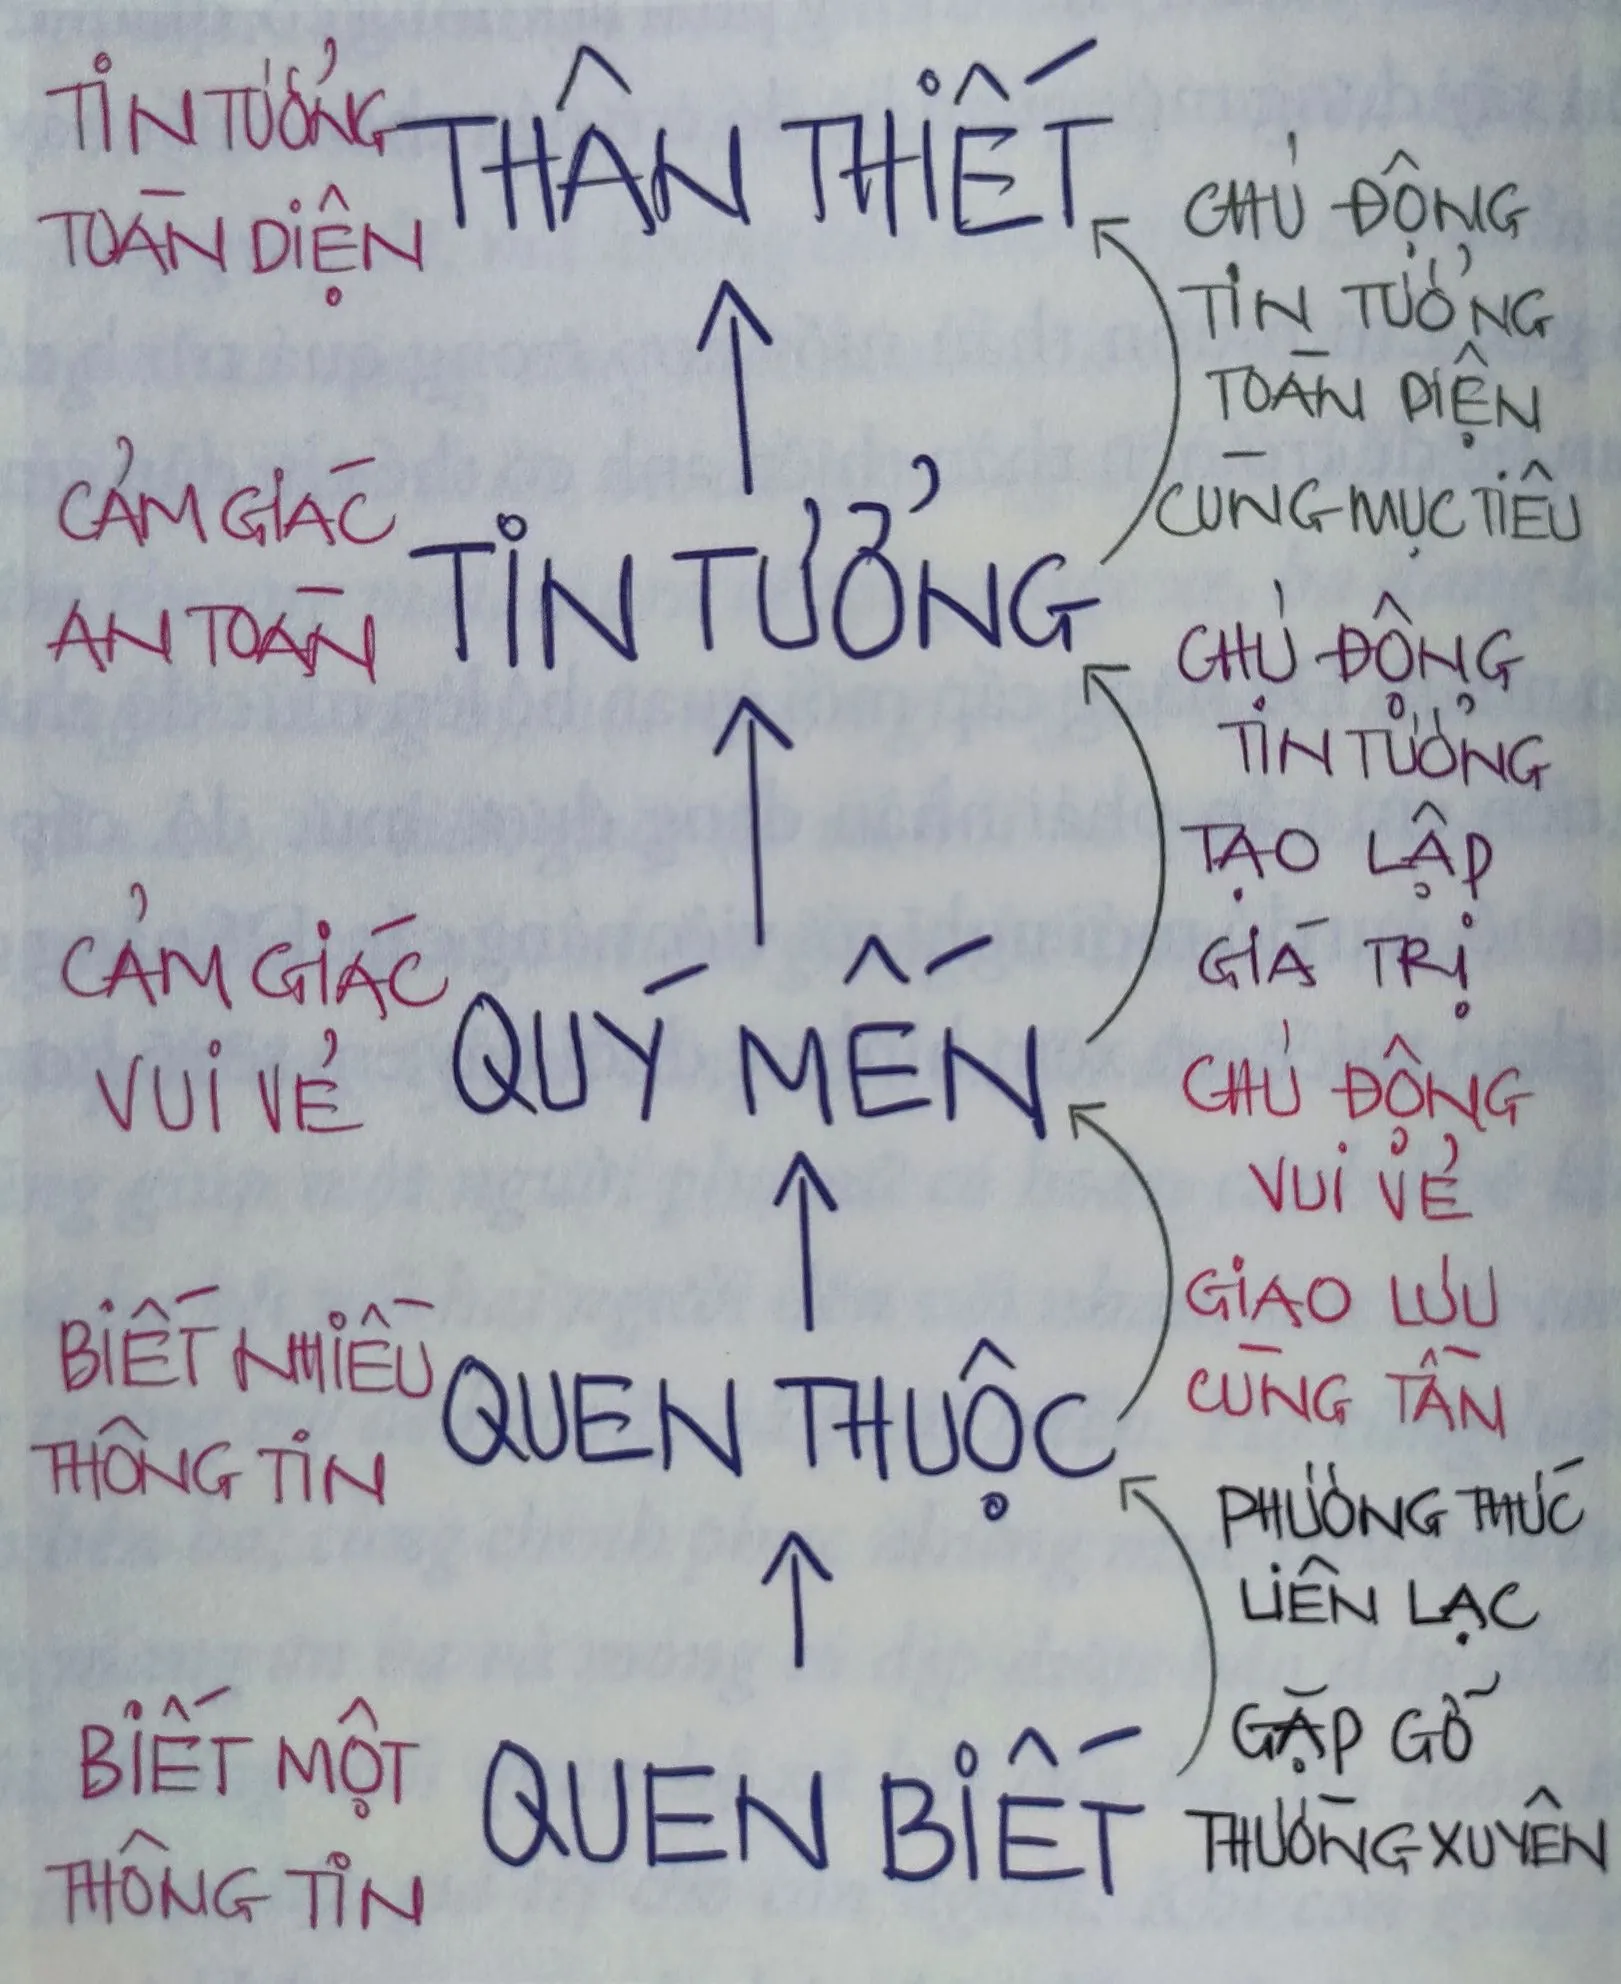 TIN TƯỞNG
TOÀN DIỆN
THÂN THIẾT
CHỦ ĐỘNG
TIN TƯỞNG
TOÀN DIỆN
CÙNG MỤC TIÊU
CẢM GIÁC
AN TOÀN
TIN TƯỞNG
CHỦ ĐỘNG
TIN TƯỞNG
TẠO LẬP
GIÁ TRỊ
CẢM GIÁC
VUI VẺ
QUÝ MẾN
CHỦ ĐỘNG
VUI VẺ
GIAO LƯU
CÙNG TẦN
BIẾT NHIỀU
THÔNG TIN
QUEN THUỘC
PHƯƠNG THỨC
LIÊN LẠC
GẶP GỠ
THƯỜNG XUYÊN
BIẾT MỘT
THÔNG TIN
QUEN BIẾT